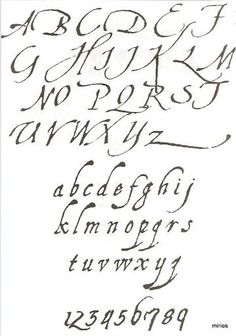 A B C D E F
G H I J K L M
N O P Q R S T
U V W X Y Z
a b c d e f g h i j
k l m n o p q r s
t u v w x y z
1 2 3 4 5 6 7 8 9
miries